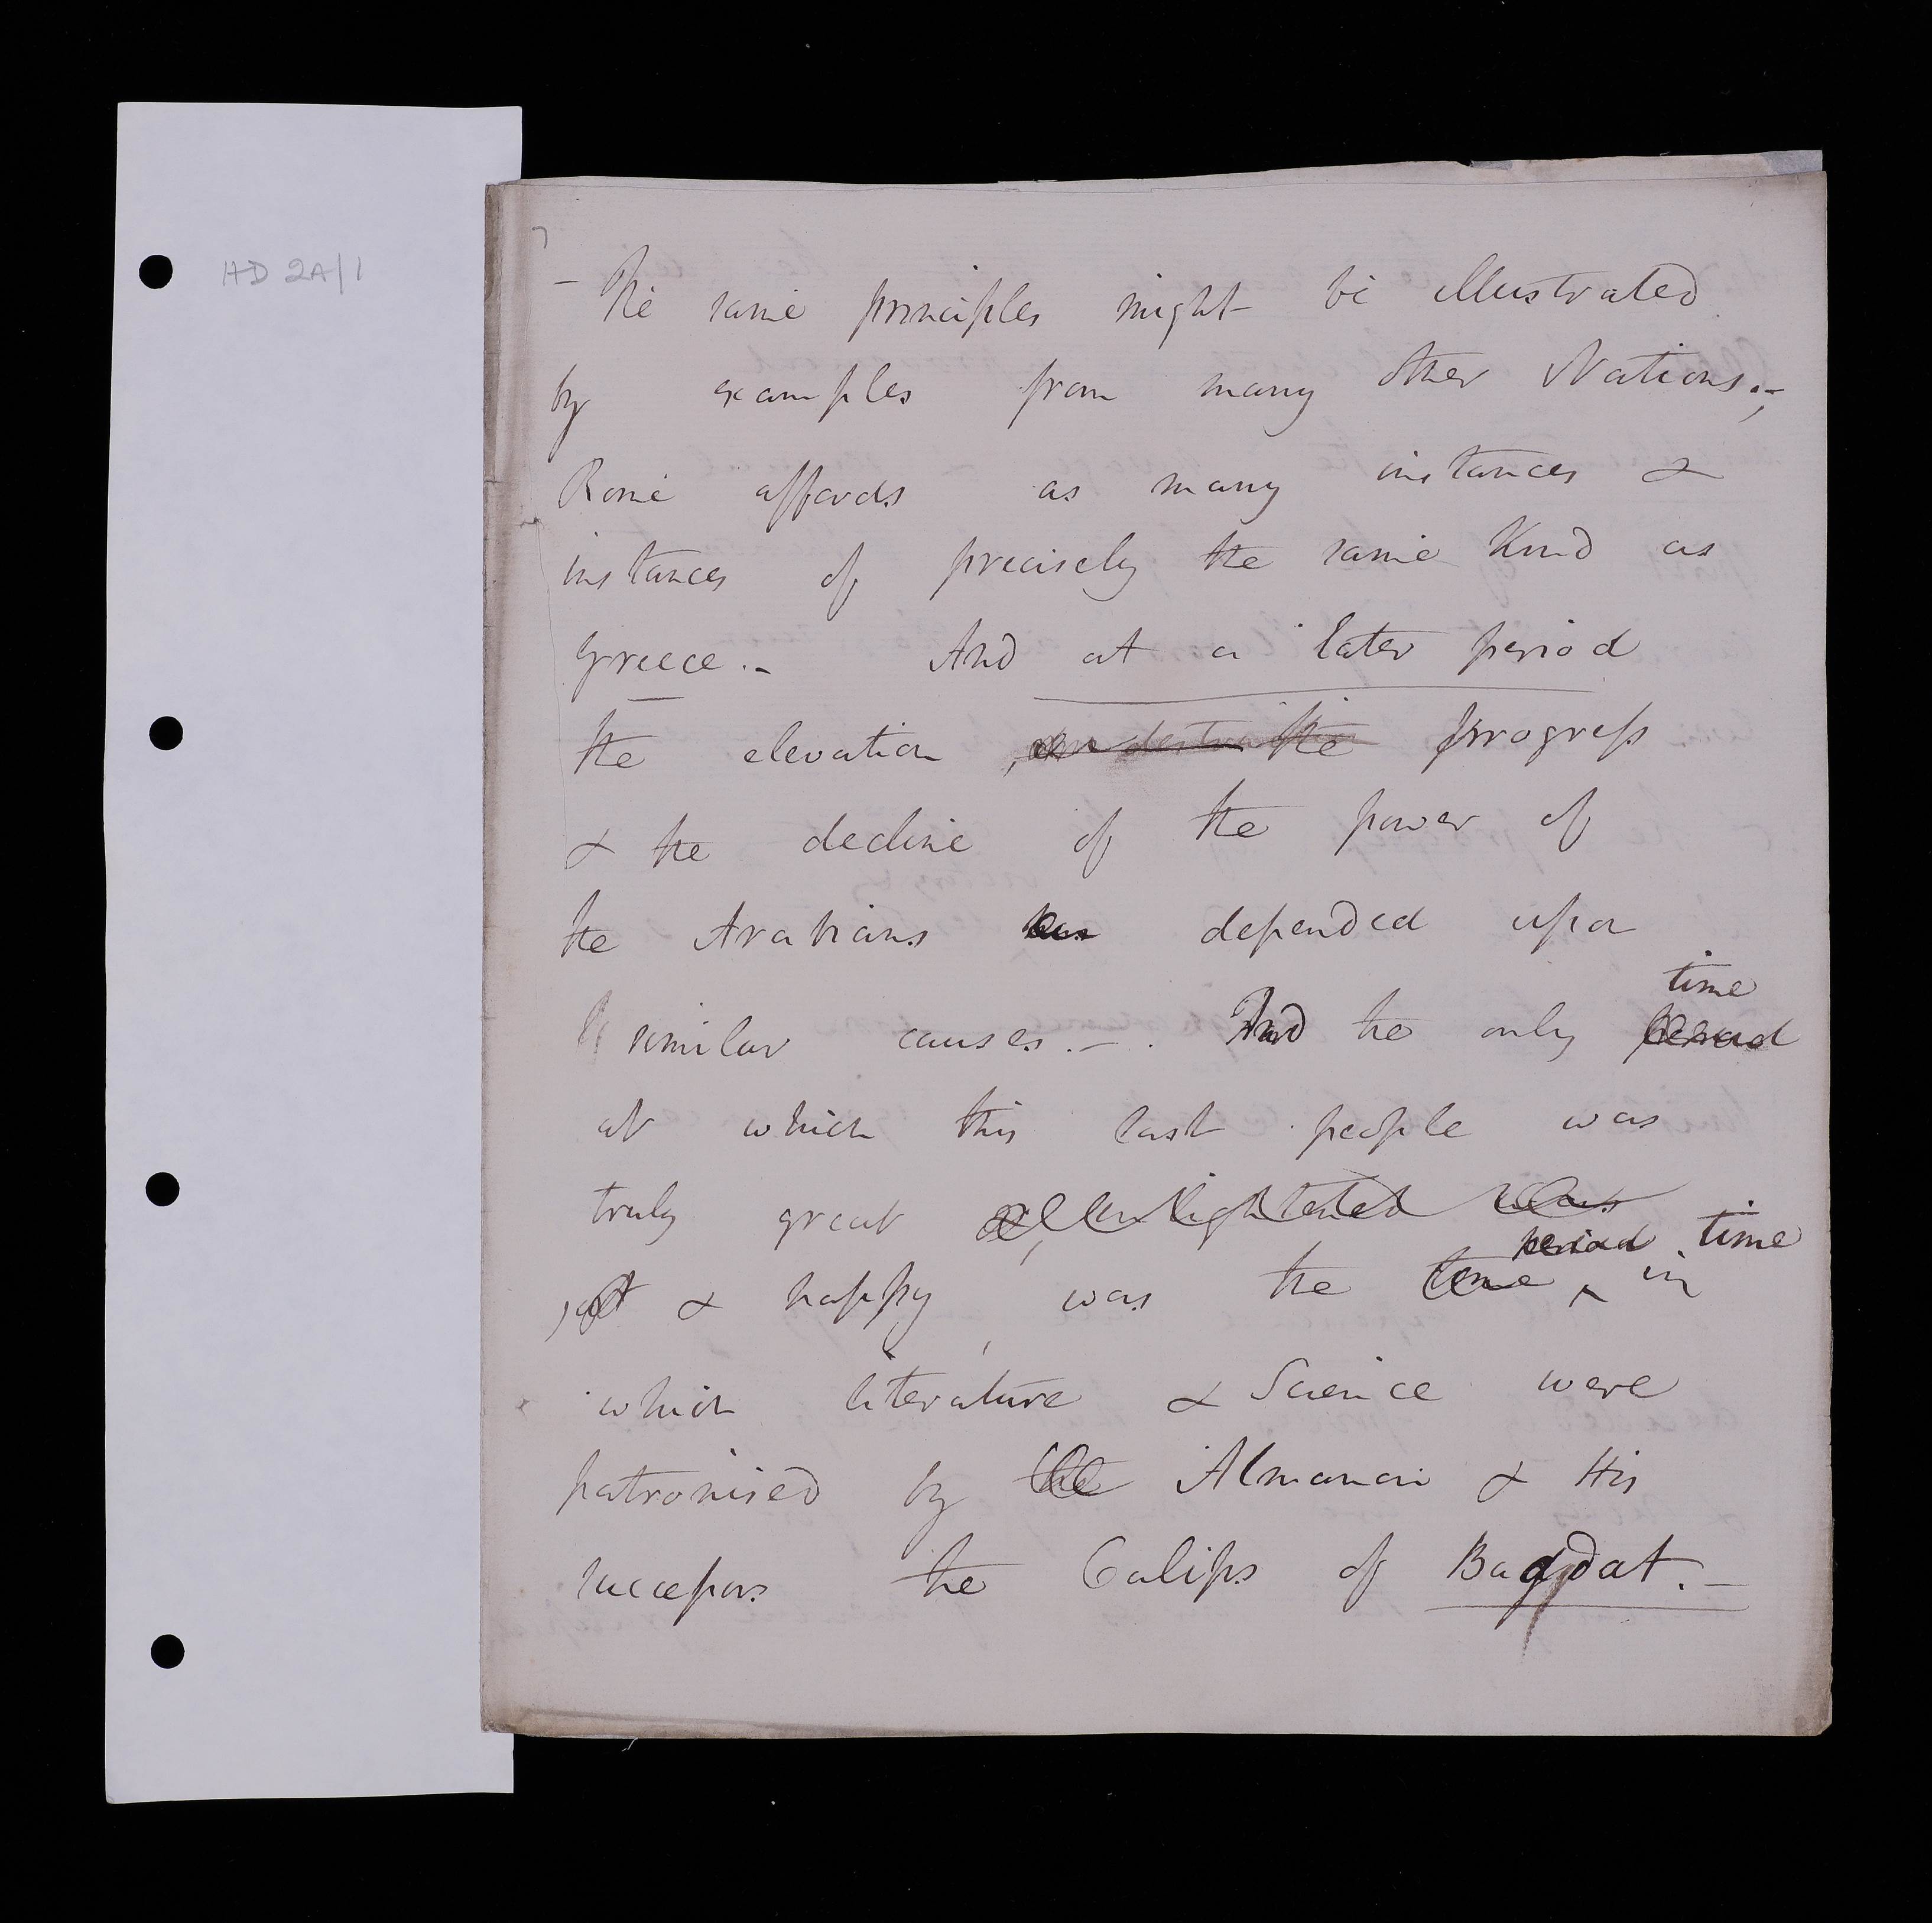 HD 2A/1
7
– The same principles might be illustrated
by examples from many other Nations.-,
Rome affords as many instances &
instances of precisely the same Kind as
Greece.- And at a later period
the elevation, the progress
& the decline of the power of
the Arabians has depended upon
similar causes.-. And the only period
time
at which this last people was
truly great & enlightened was
& happy, was the time in
period time
which literature & Science were
patronised by the Almanon & His
successors the Califs of Bagdat.-